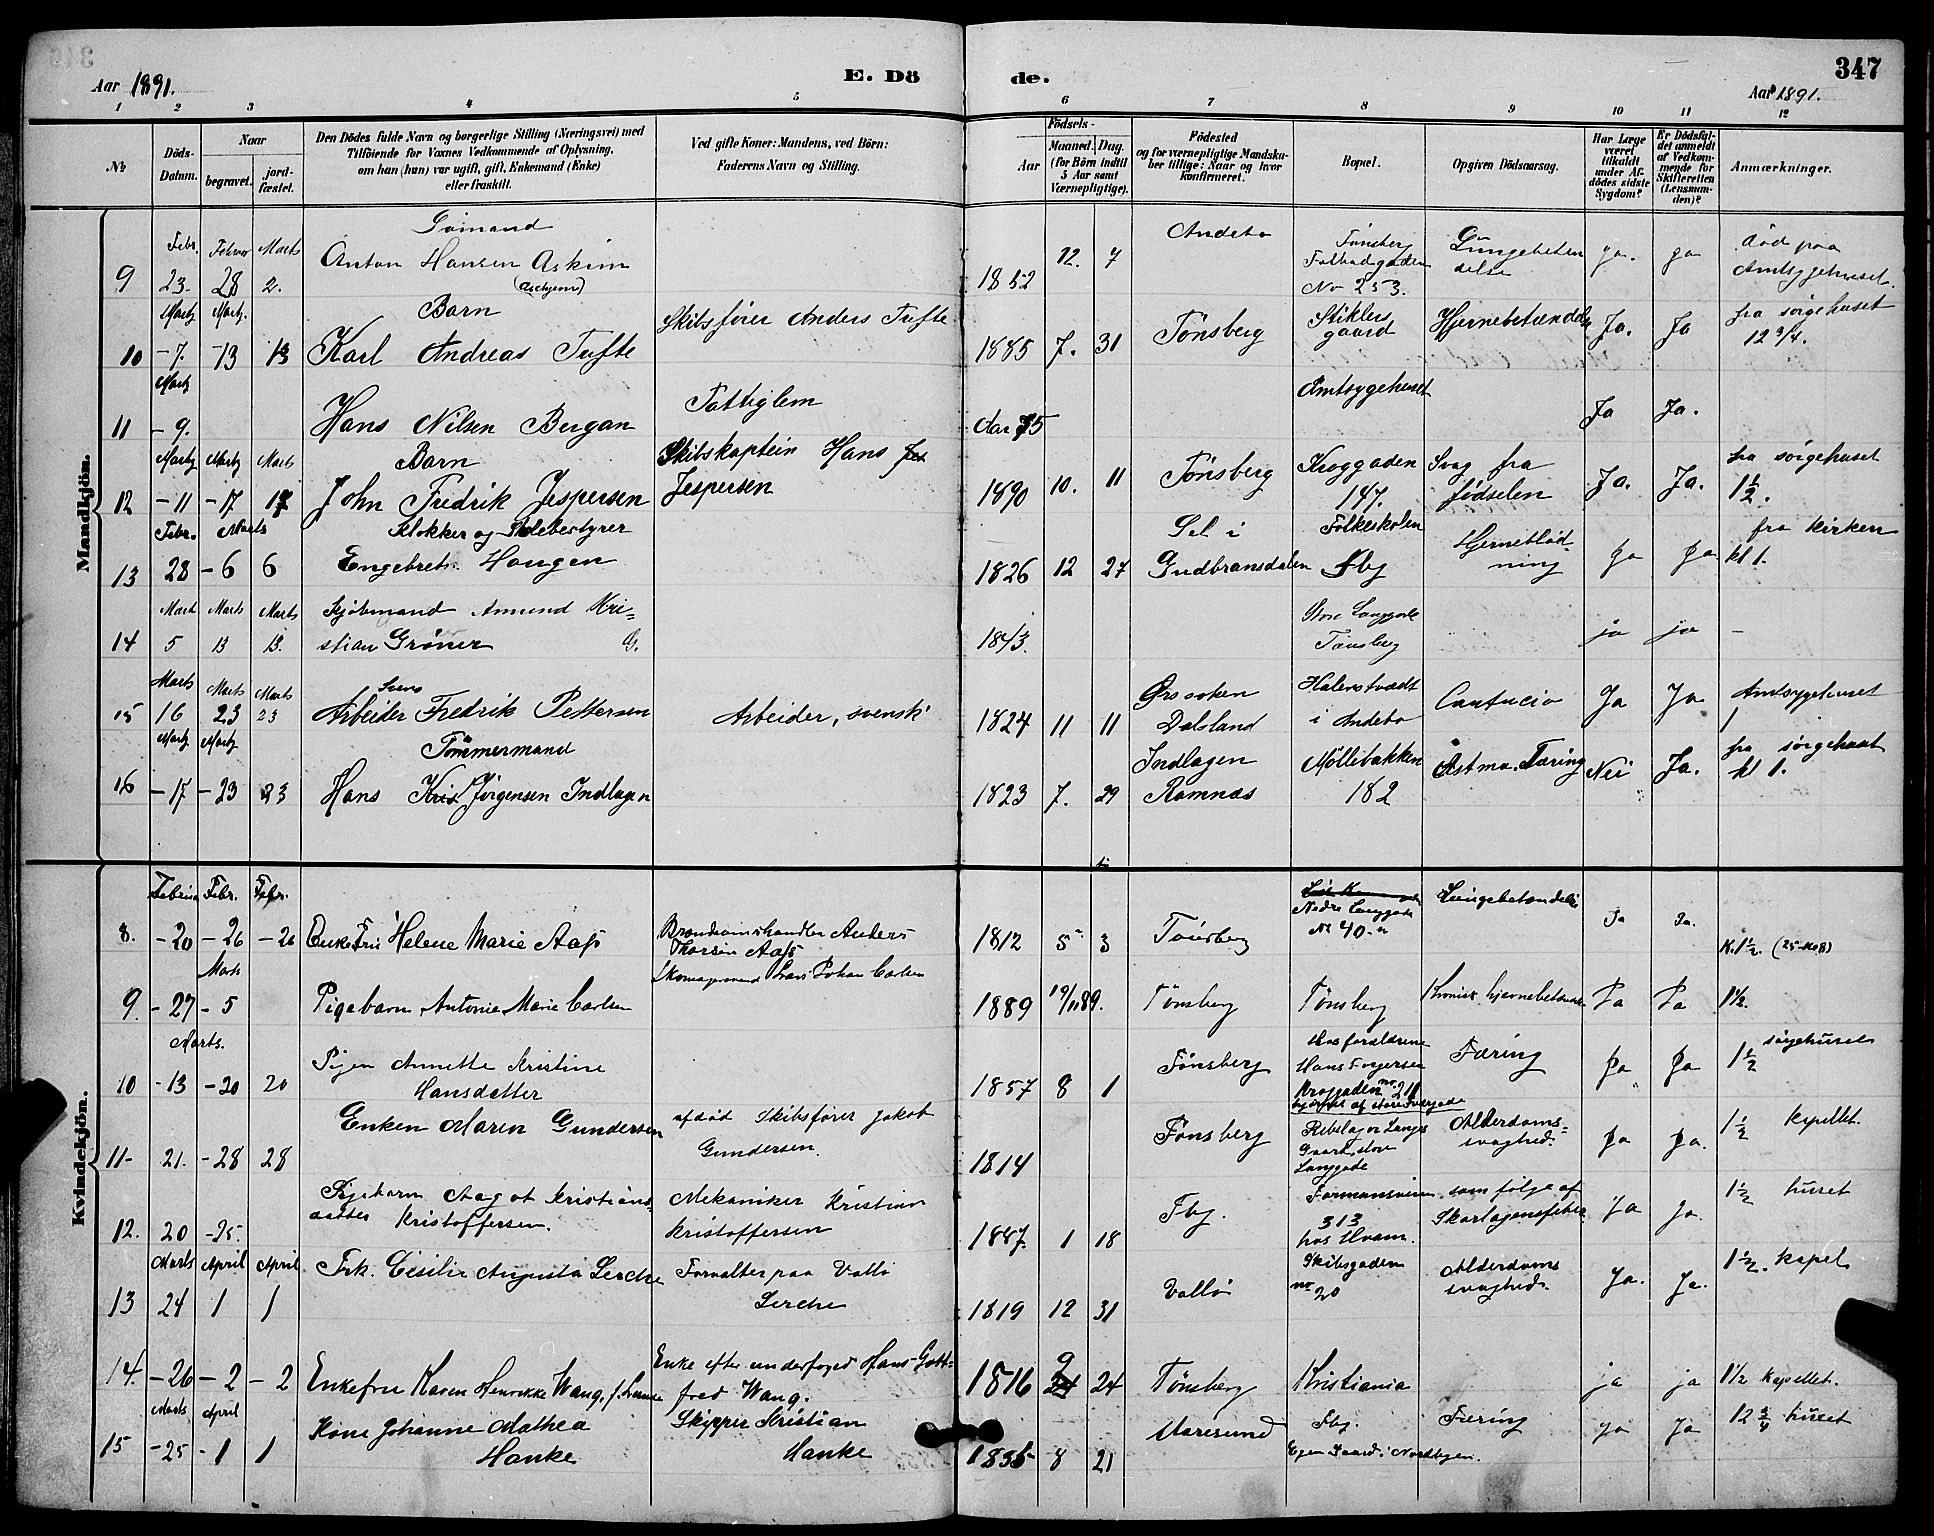 Aar 1891. E. Dö de. Aar 1891. 347
1 2 3 4 5 6 7 8 9 10 11 12
№
Döds-Datum.
Naar
begravet.
jord-fæstet.
Den Dödes fulde Navn og borgerlige Stilling (Næringsvei) med
Tilföiende for Voxnes Vedkommende af Oplysning,
om han (hun) var ugift, gift, Enkemand (Enke)
eller fraskilt.
Ved gifte Koner: Mandens, ved Börn:
Faderens Navn og Stilling.
Födsels-
Aar
Maaned.
Dag.
(for Börn indtil
5 Aar samt
Værnepligtige).
Födested
og for værnepligtige Mandska-
ber tillige: Naar og hvor
konfirmeret.
Bopæl.
Opgiven Dödsaarsag.
Har Læge
været
tilkaldt
under Af-
dödes sidste
Sygdom?
Er Dödsfal-
det anmeldt
af Vedkom-
mende for
Skifteretten
(Lensman-
den)?
Anmærkninger.
Mandkjön.
Febr. Februar Marts Sömand Andebo Tønsberg Lungebeten død paa
9 23. 28 2. Anton Hansen Askim (Aschjem) 1852 12. 7 Folbadgaden No 253. delse ja. ja Amtsygehuset.
Marts Marts. Barn Skibsfører Anders Tufte Stiklers fra sørgehuset
10 -7. -13 13 Karl Andreas Tufte 1885 7. 31 Tönsberg gaard Hjernebetændelse Ja. Ja 12 3/4.
Marts Fattiglem Amtsygehuset
11 -9. Hans Nilsen Bergan Aar 75 Ja Ja.
Marts Marts Marts Barn Skibskaptein Hans Kroggaden Svag fra fra sørgehuset
12 -11 -17 17 John Fredrik Jespersen Jespersen 1890 10. 11 Tønsberg 147. fødselen Ja. Ja. 1 1/2.
Febr. Marts Klokker og Skolebestyrer Sel i Folkeskolen Hjerneblød- fra kirken
13 28 -6 6 Engebret Haugen 1826 12 27 Gudbransdalen Tbg ning ja ja kl 1.
Marts Marts Marts Kjøbmand Amund Kri- Store Langgade
14 5 13 13. stian Grøner G. 1843. Tønsberg ja ja -
Marts Marts Marts Svens Ørssoken
15 16 23 23 Arbeider Fredrik Pettersen Arbeider, svensk 1824 11 11 Dalsland i Andebo Ja Ja Amtsygehuset 1
Marts Marts Tømmermand Indlagen Møllebakken fra sørgehuset
16 -17 -23 23 Hans Kris Jørgensen Indlagen 1823 7. 29 Ramnæs 182 Astma. Tæring Nei Ja. kl 1.
Kvindekjön.
Febr. Febr. Nedre Langgade Lungebetændelse
8. -20 -26 -26 Enkefru Helene Marie Aass Brændevinshandler Anders Thorsen Aass 1812 5 3 Tönsberg No 40. Ja Ja. K. 1 1/2.
Marts Johan Carlsen
9. -27 -5 Pigebarn Antonie Marie Carlsen 1889 19/11 89. Tönsberg Tönsberg Kronisk hjernebetændelse Ja Ja 1 1/2.
Marts. Pigen Annette Kristine Hos forældrene sørgehuset
10 -13 -20 20 Hansdatter 1857 8 1 Tönsberg Hans Torgersen Kroggaden no 211 Tæring Ja Ja 1 1/2
hjørnet af store Færgegade
11- 21. -28 28 Enken Maren Gundersen afdød Skibsfører Jakob Gundersen. 1814 Tönsberg Gaard, store Langgade Alderdoms- svaghed. Ja Ja. 1 1/2 kapellet.
Pigebarn Aagot Kristians- Mekaniker Kristian som følge af
12. 20 -25. datter Kristoffersen. Kristoffersen 1887. 1 18 Tbg. 313 hos Hvam. Skarlagensfeber Ja Ja. 1 1/2 huset
Marts April April
13 24 1 1 Frk. Cisilie Augusta Lerche Forvalter paa Vallö Lerche 1819 12 31 Vallö Skibsgaden no 20 Alderdoms svaghed. Ja. Ja. 1 1/2. kapel.
14. -26 -2 -2 Enkefru Karen Henrikke Wang, Enke efter underfoged Hans Gott- fred Wang. 1816 9 24 Tönsberg Kristiania ja ja 1 1/2 kapellet.
Marts April
15 -25 -1 1 Kone Johanne Mathea Hanke Skipper Kristian Hanke 1835 8 21 Tbg. Egen Gaard i Nordbyen. Tæring ja Ja 12 3/4 huset